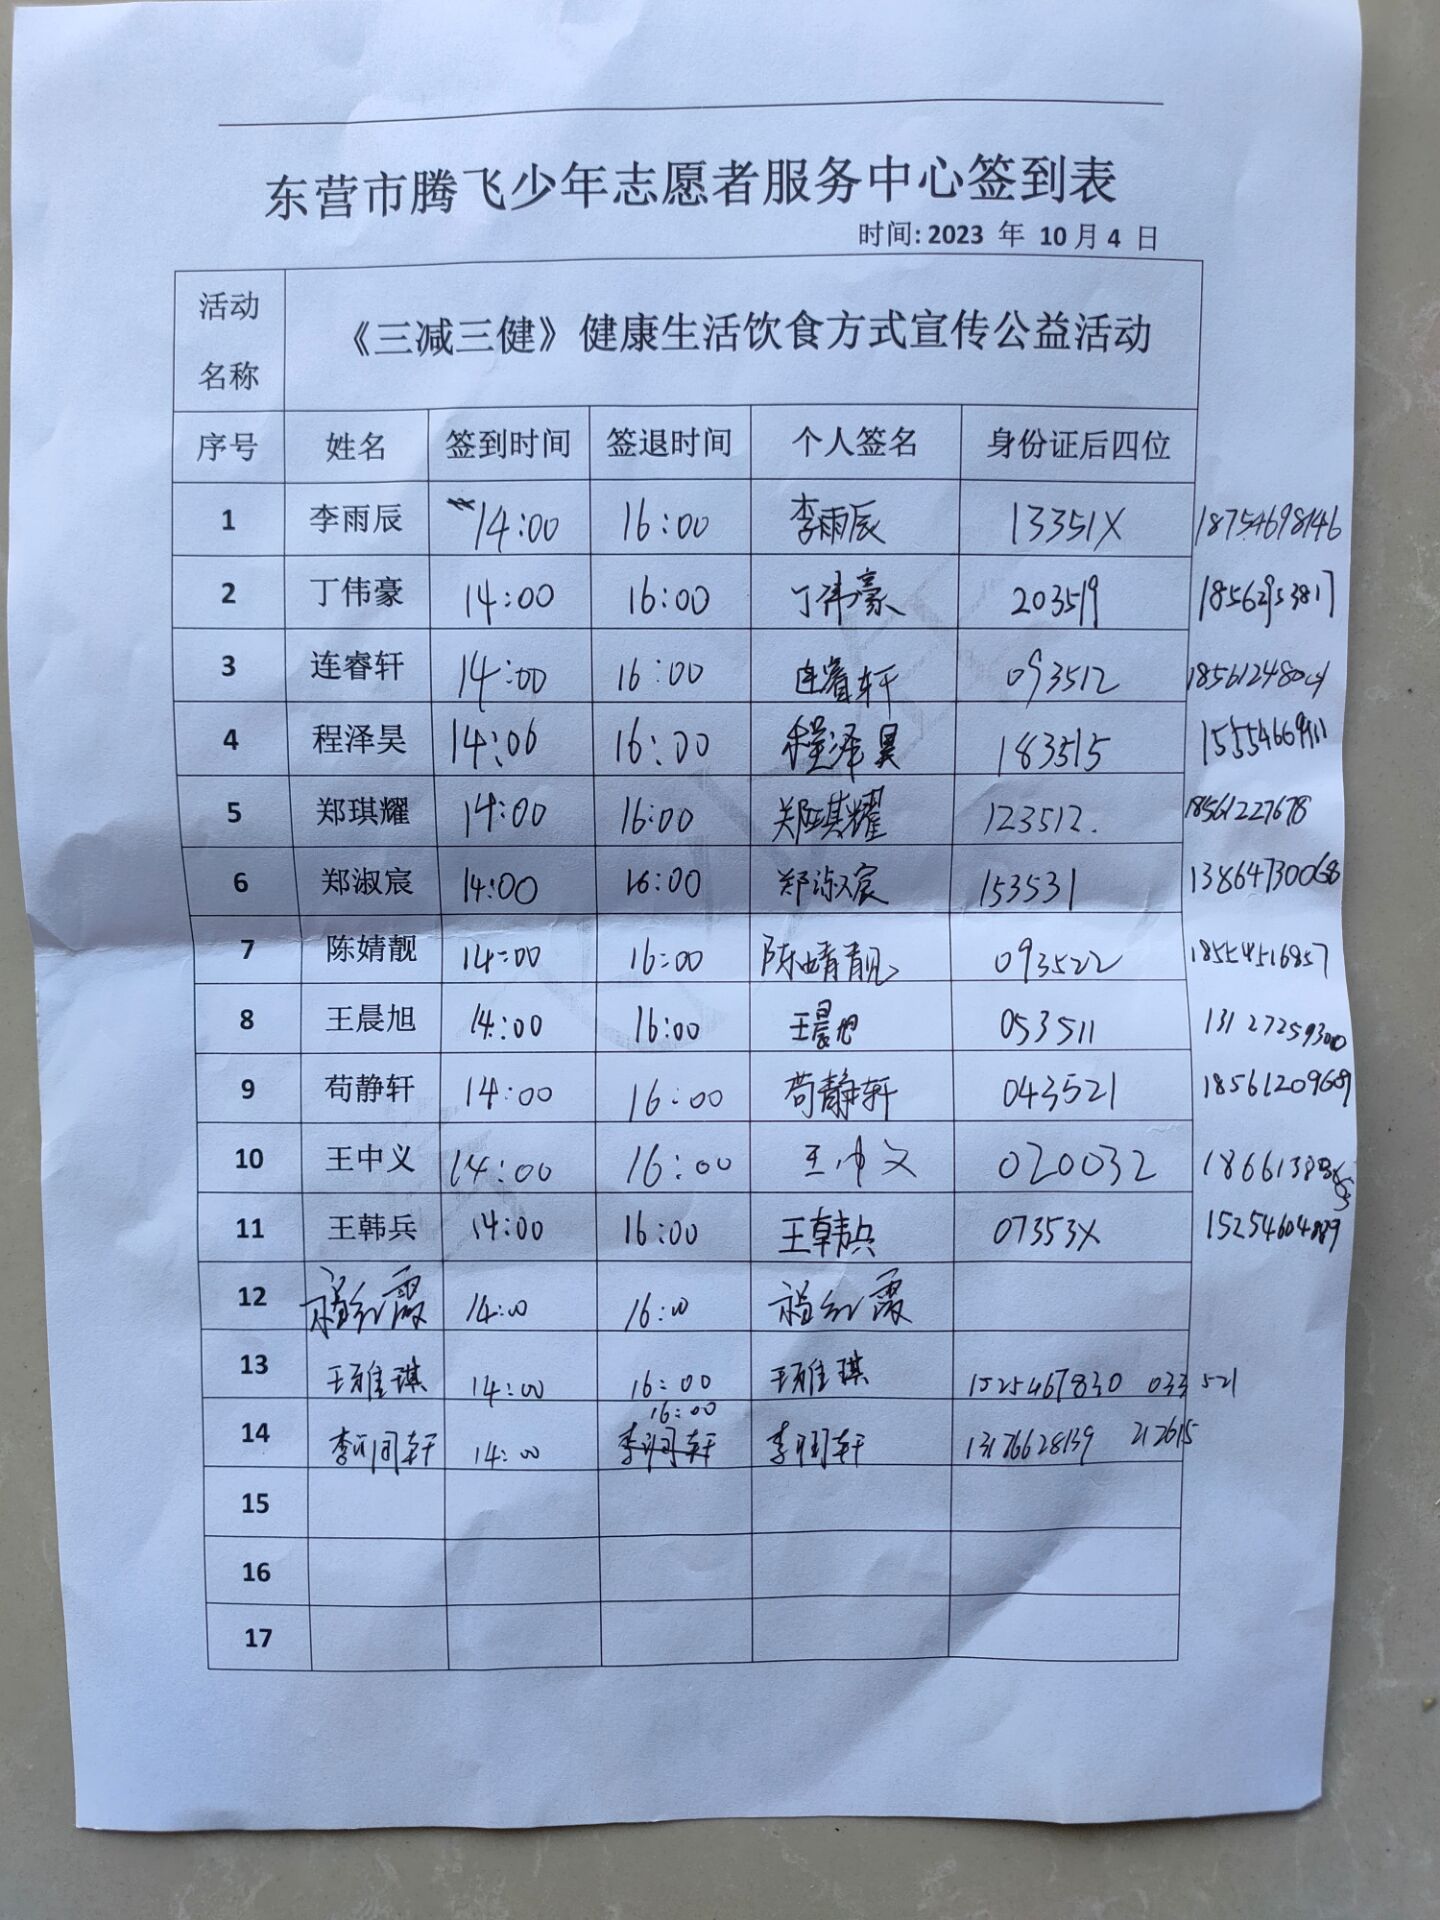 东营市腾飞少年志愿者服务中心签到表
时间: 2023 年 10 月 4 日
活动名称 《三减三健》健康生活饮食方式宣传公益活动
序号 姓名 签到时间 签退时间 个人签名 身份证后四位
1 李雨辰 14:00 16:00 李雨辰 13351X 18754698146
2 丁伟豪 14:00 16:00 丁伟豪 203519 18562953817
3 连睿轩 14:00 16:00 连睿轩 093512
4 程泽昊 14:00 16:00 程泽昊 183515
5 郑琪耀 14:00 16:00 郑琪耀 123512. 18561227678
6 郑淑宸 14:00 16:00 郑淑宸 153531 13864730068
7 陈婧靓 14:00 16:00 陈婧靓 093522 18554516857
8 王晨旭 14:00 16:00 王晨旭 053511
9 苟静轩 14:00 16:00 苟静轩 043521 18561209689
10 王中义 14:00 16:00 王中义 020032
11 王韩兵 14:00 16:00 王韩兵 07353X 15254604889
12 14:00 16:00
13 王雅琪 14:00 16:00 王雅琪 1525467830 033521
14 李润轩 14:00 16:00 李润轩 李润轩 13176628139 212615
15
16
17